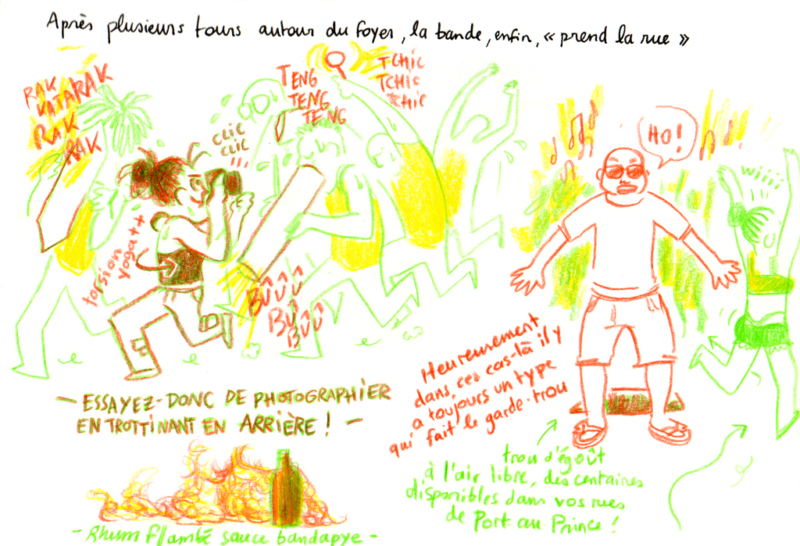 Après plusieurs tours autour du foyer, la bande, enfin, « prend la rue »
RAK
KATARAK
RAK
RAK
CLIC
CLIC
!!!
TENG
TENG
TENG
TCHIC
TCHIC
TCHIC
HO!
wiiii
torsion
yoga++
BÛÛÛ
BÛ
BÛÛ
- ESSAYEZ-DONC DE PHOTOGRAPHIER
EN TROTTINANT EN ARRIÈRE ! -
Heureusement
dans ces cas-là il y
a toujours un type
qui fait le garde-trou
trou d'égoût
à l'air libre, des centaines
disponibles dans vos rues
de Port au Prince !
- Rhum flambé sauce bandapye -